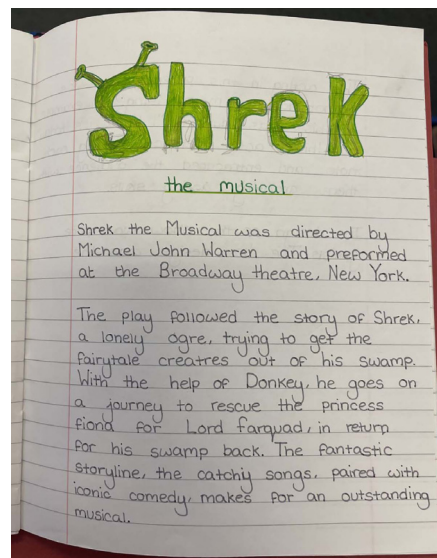 Shrek
the musical
Shrek the Musical was directed by
Michael John Warren and preformed
at the Broadway theatre, New York.
The play followed the story of Shrek,
a lonely ogre, trying to get the
fairytale creatres out of his swamp.
With the help of Donkey, he goes on
a journey to rescue the princess
fiond for Lord farquad, in return
for his swamp back. The fantastic
storyline, the catchy songs, paired with
iconic comedy, makes for an outstanding
musical.